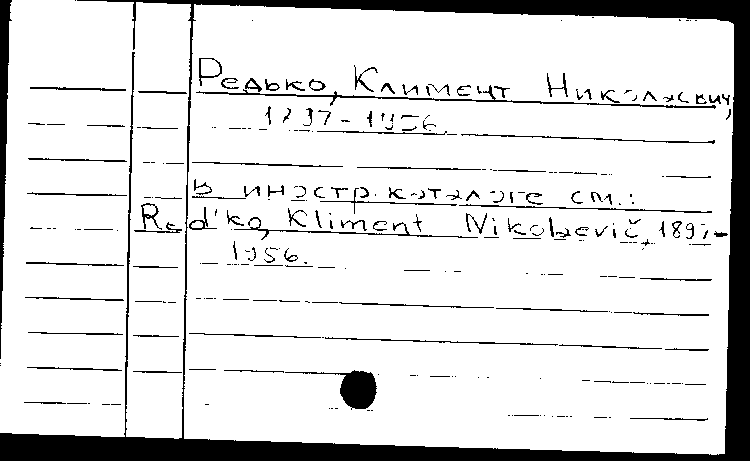 Редько, Климент Николаевич,
1897-1956.
в иностр. каталоге см.:
Red'ko, Kliment Nikolaevič, 1897-
1956.